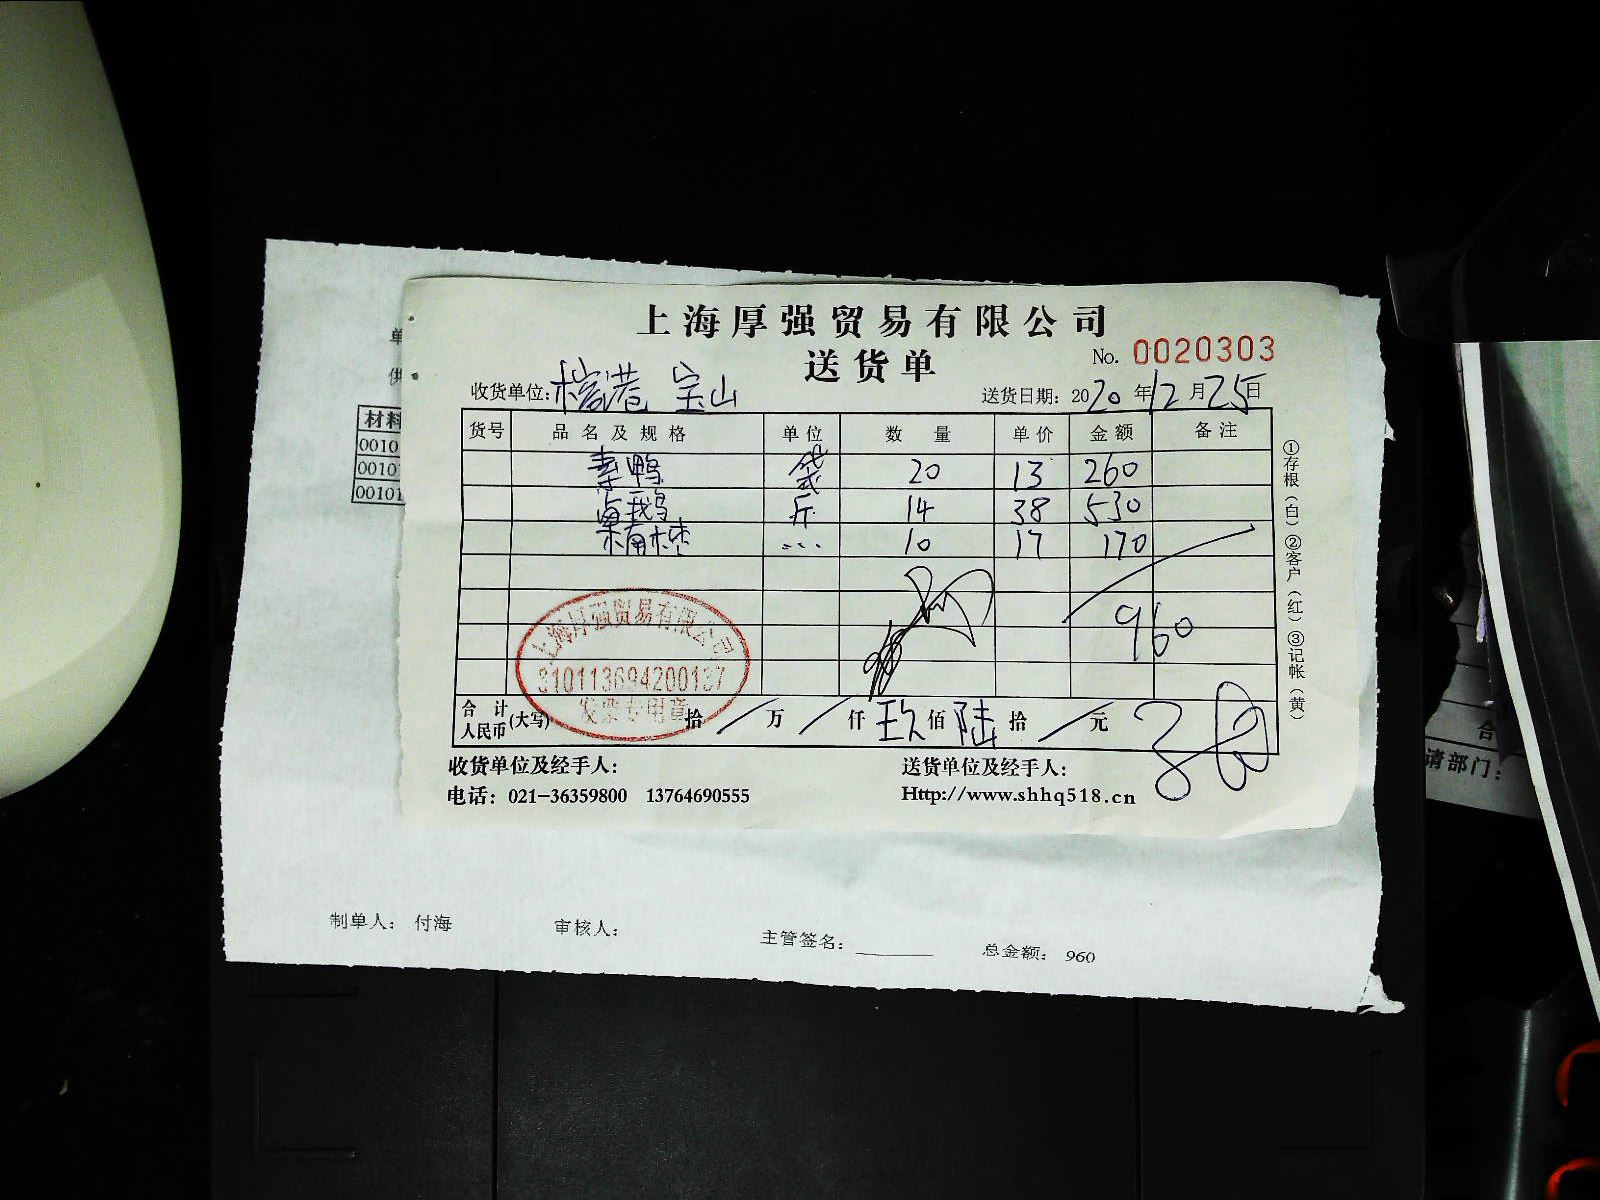 上海厚强贸易有限公司
送货单
No. 0020303
收货单位: 榕港 宝山
送货日期: 2020 年 12 月 25 日
货号 品名及规格 单位 数量 单价 金额 备注
素鸭 袋 20 13 260
卤鹅 斤 14 38 530
10 17 170
960
上海厚强贸易有限公司
310113694200137
发票专用章
合计人民币(大写) 拾 / 万 / 仟 玖 佰 陆 拾 / 元
收货单位及经手人:
送货单位及经手人:
电话: 021-36359800 13764690555
Http://www.shhq518.cn
①存根(白)②客户(红)③记帐(黄)
单
供
材料
0010
0010
00101
制单人: 付海
审核人:
主管签名:
总金额: 960
合
请部门: